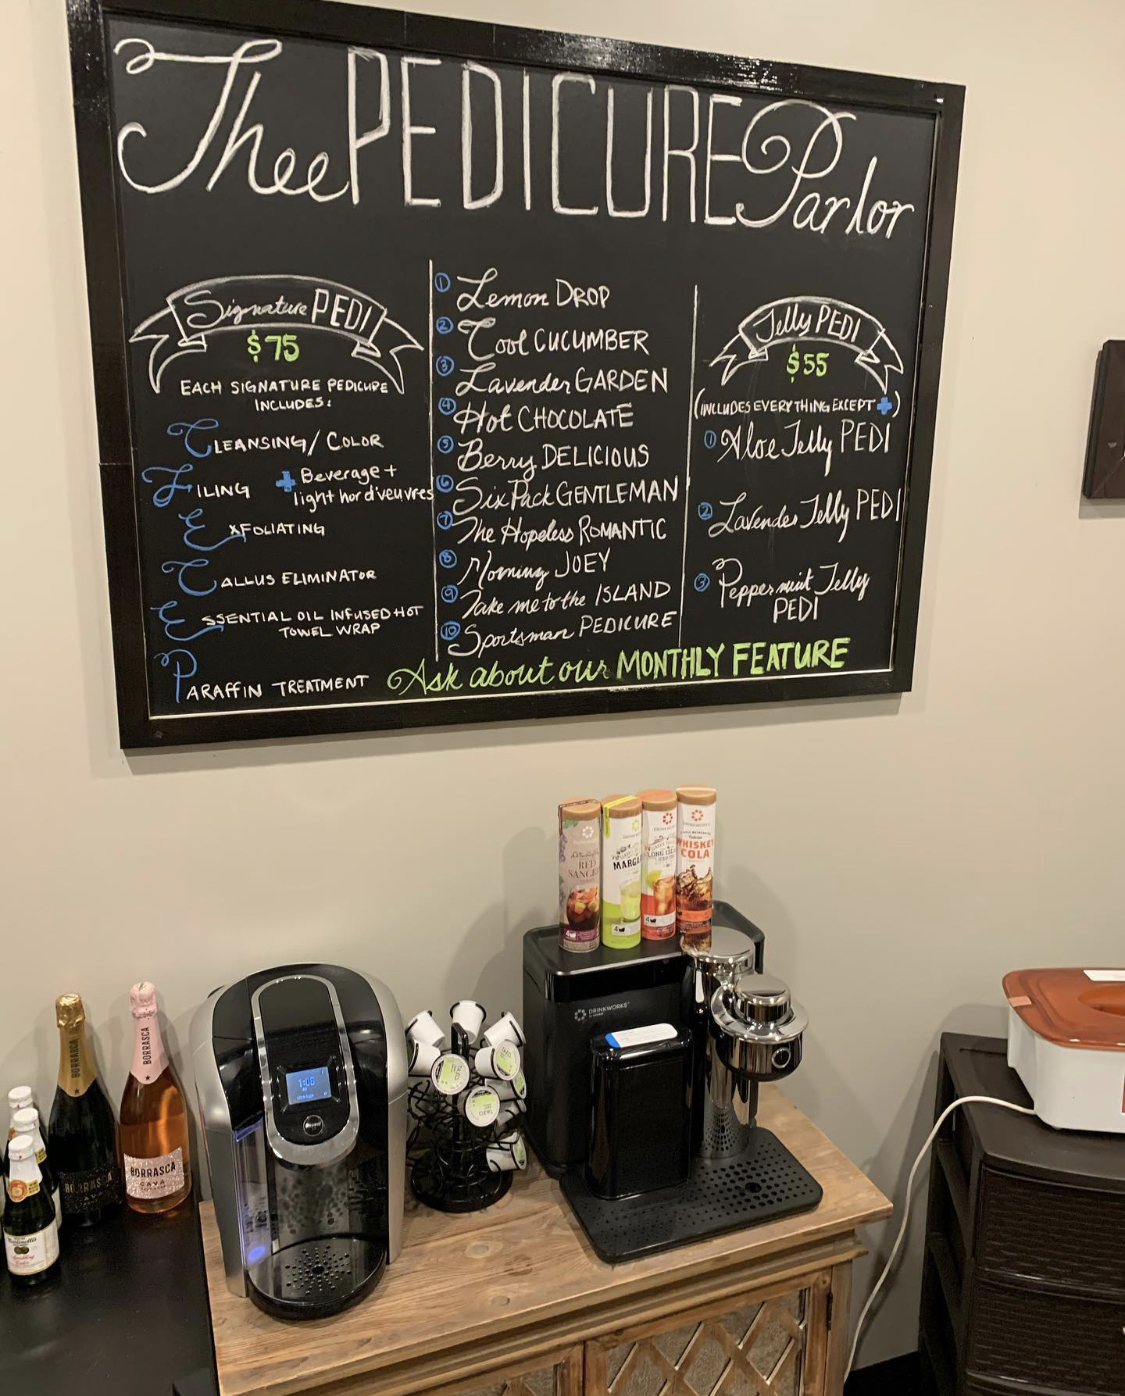 Thee PEDICURE Parlor
Signature PEDI
$75
EACH SIGNATURE PEDICURE
INCLUDES:
CLEANSING/COLOR
FILING
+ Beverage +
light hor d'veuvres
EXFOLIATING
CALLUS ELIMINATOR
ESSENTIAL OIL INFUSED HOT
TOWEL WRAP
PARAFFIN TREATMENT
1 Lemon DROP
2 Cool CUCUMBER
3 Lavender GARDEN
4 Hot CHOCOLATE
5 Berry DELICIOUS
6 Six Pack GENTLEMAN
7 The Hopeless ROMANTIC
8 Morning JOEY
9 Take me to the ISLAND
10 Sportsman PEDICURE
Jelly PEDI
$55
(INCLUDES EVERYTHING EXCEPT +)
1 Aloe Jelly PEDI
2 Lavender Jelly PEDI
3 Peppermint Jelly
PEDI
Ask about our MONTHLY FEATURE
RED
WHISKEY
COLA
DRINKWORKS
BORRASCA
BORRASCA
BORRASCA
CAVA
BORRASCA